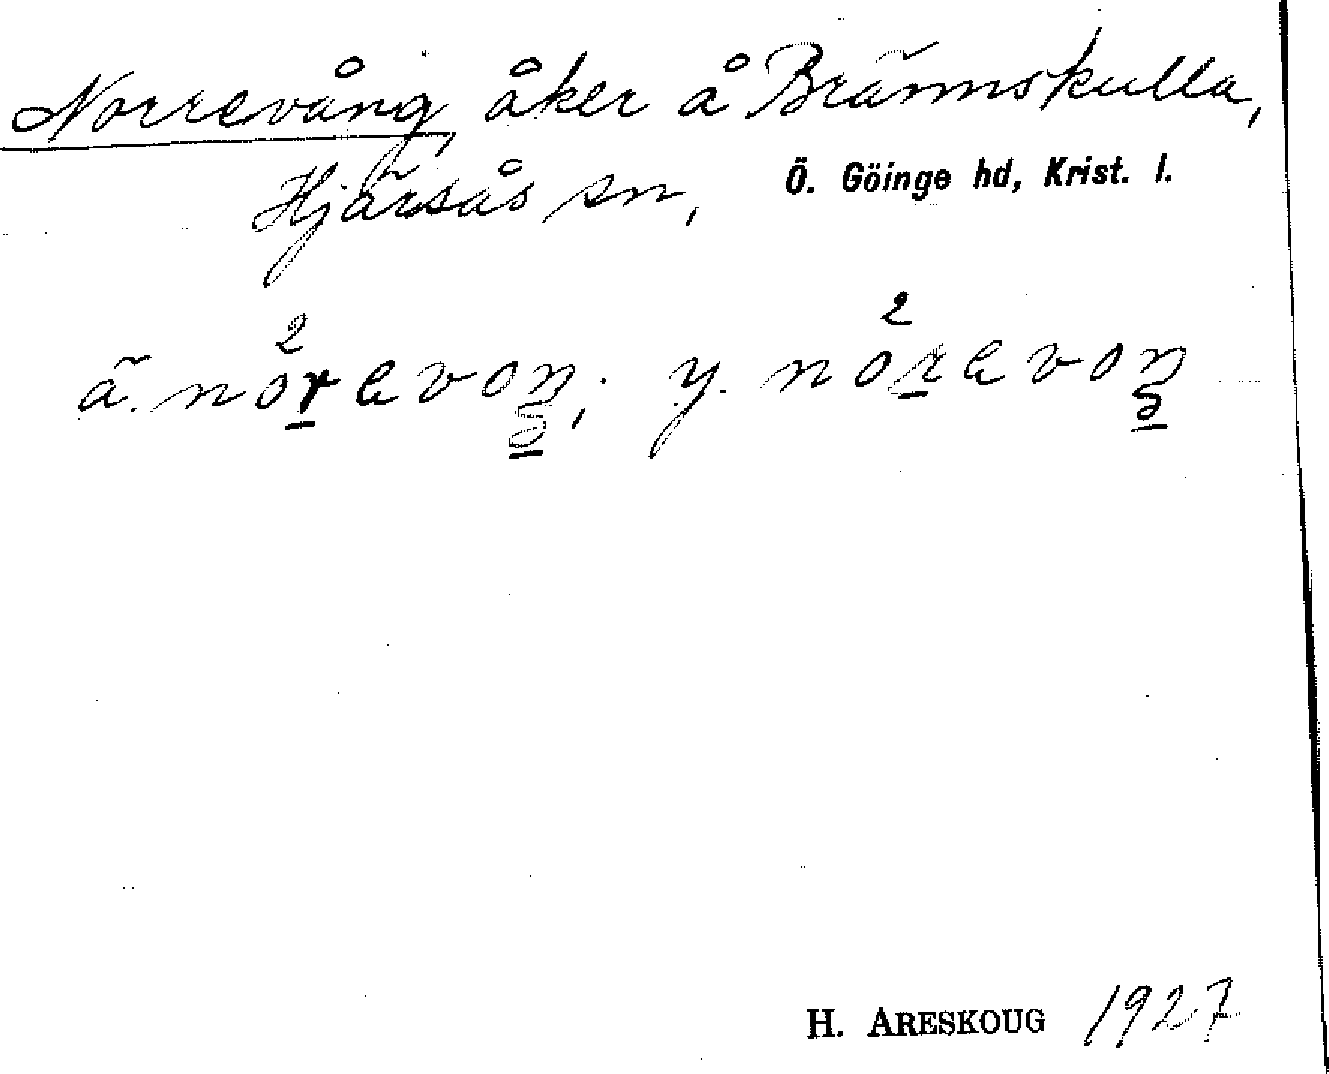 Norrevång, åker å Brännskulla,
Hjärsås sn, Ö. Göinge hd, Krist. l.
ä. nòrevoŋ; y. nòrevoŋ
H. ARESKOUG 1927